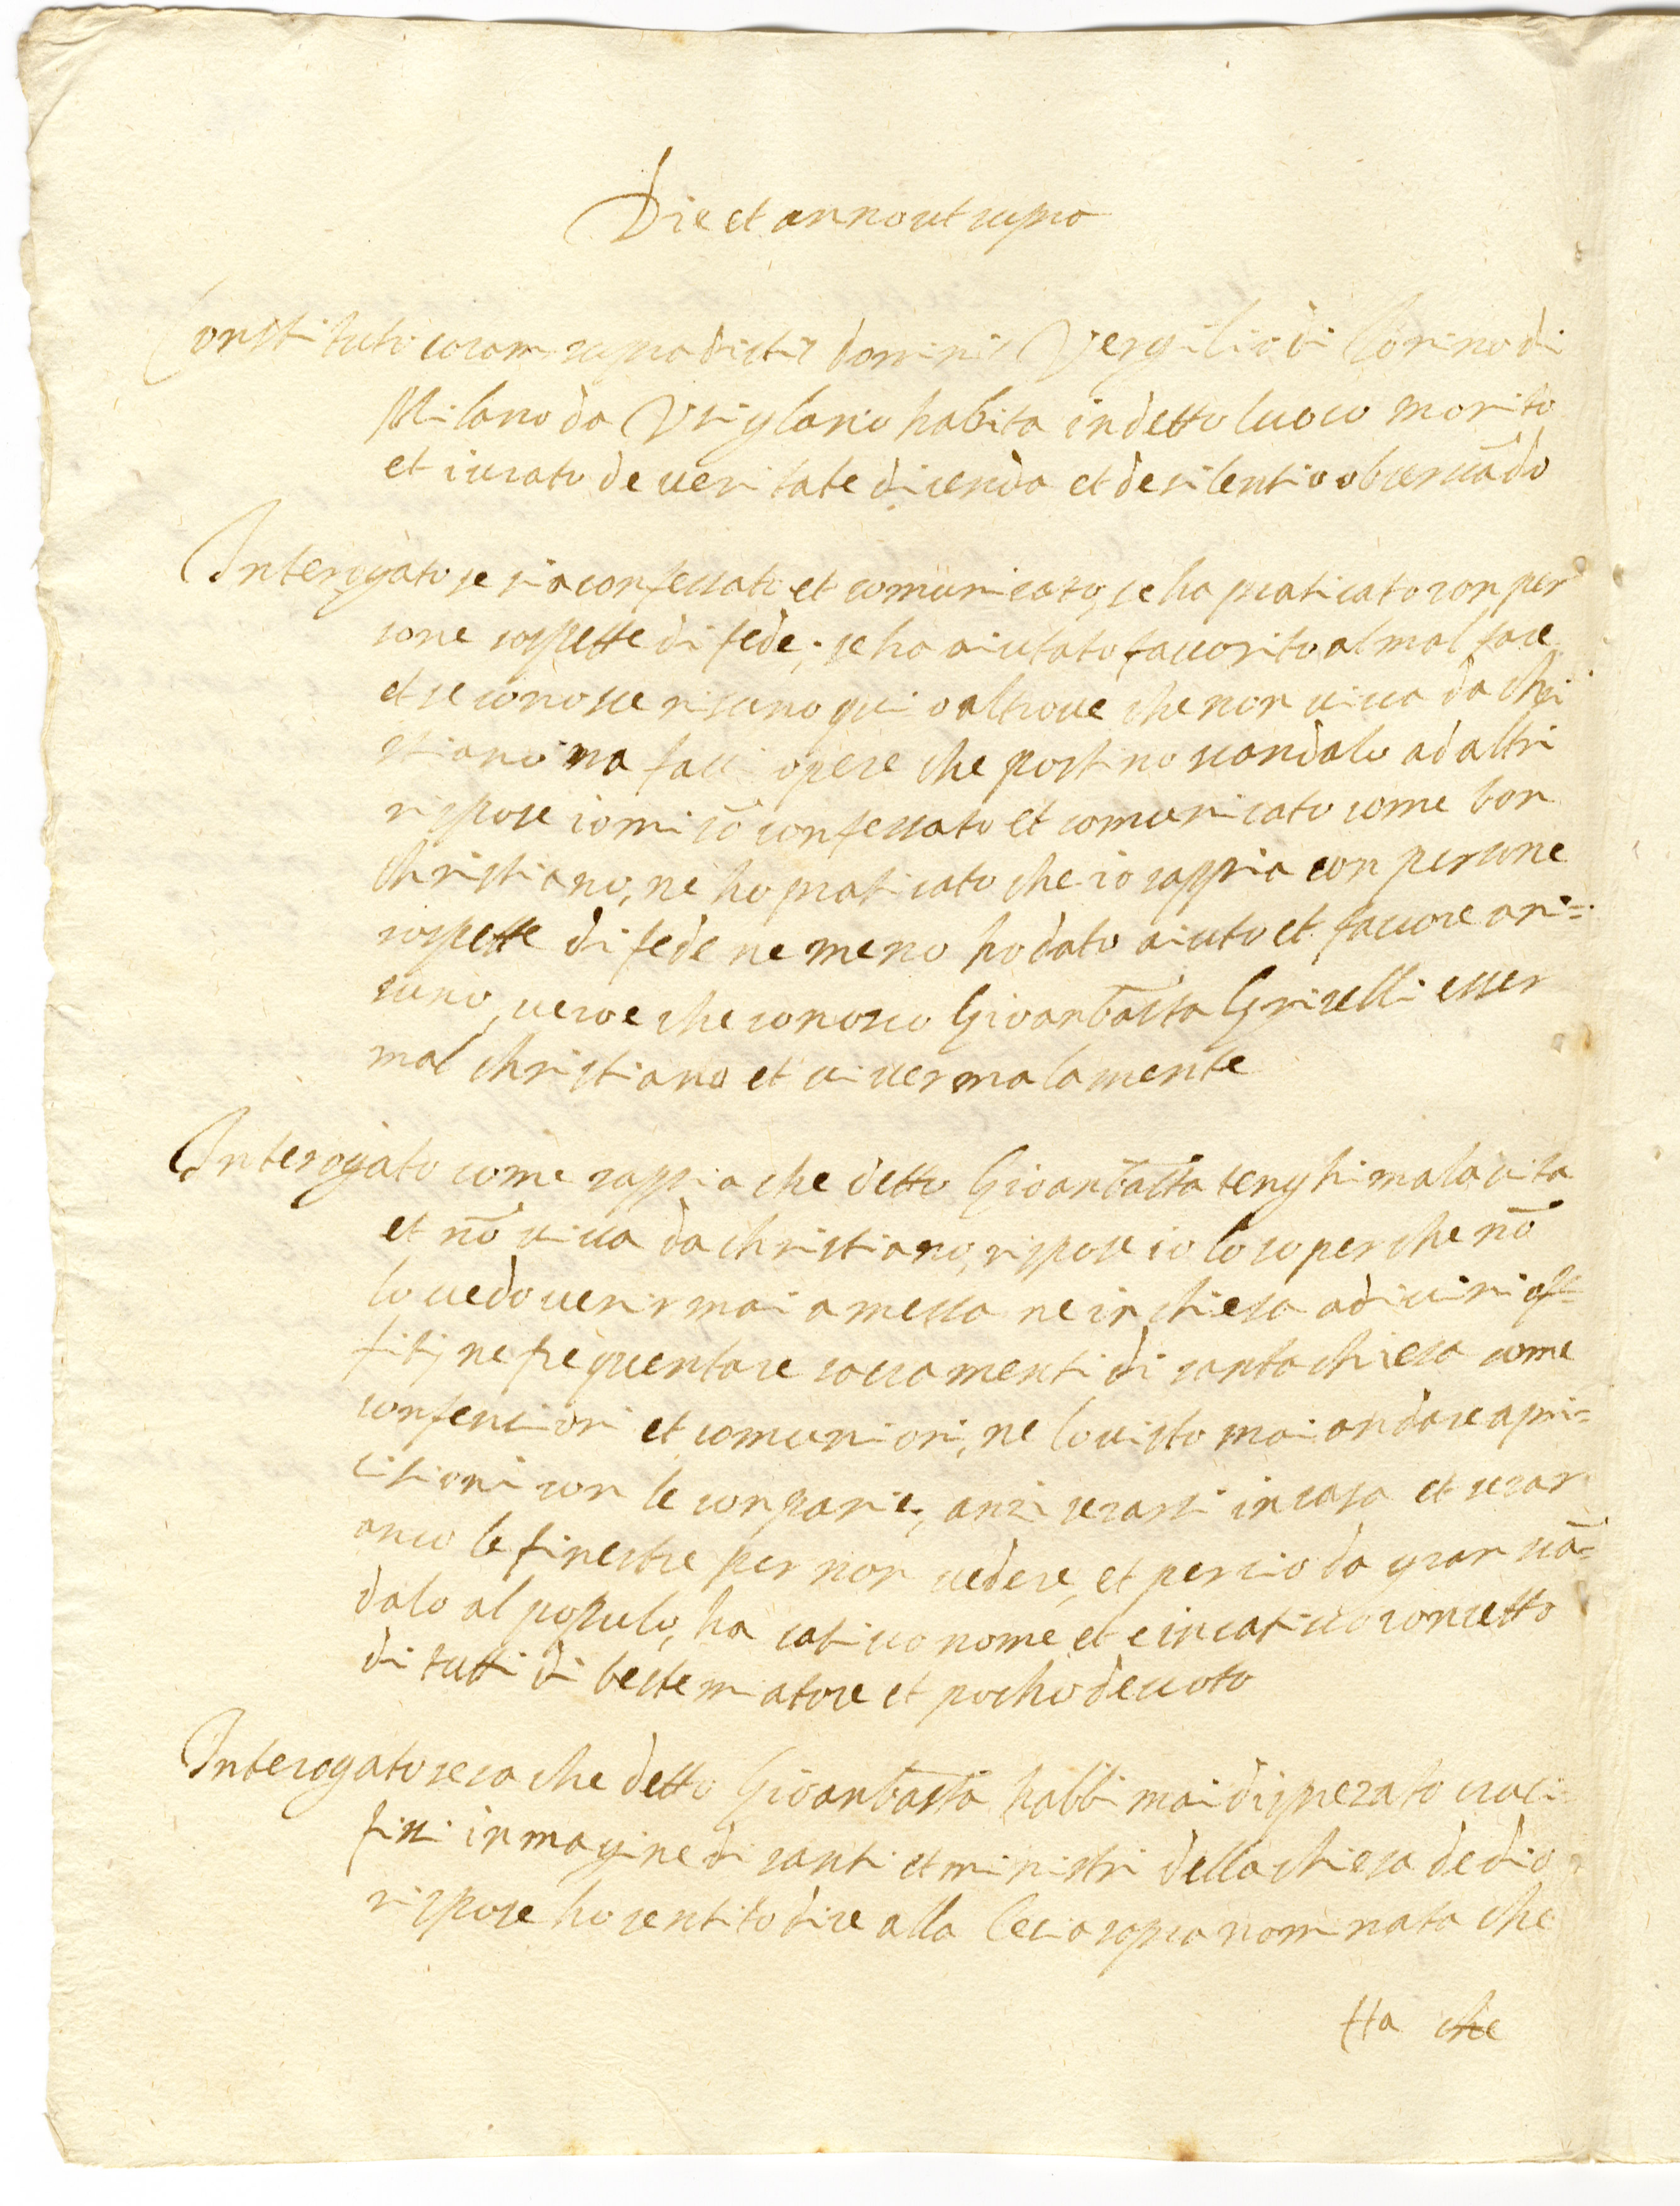 Die et anno ut supra
Constituto coram supradictis dominis Vergilio di Corino di
Milano da Viglano habita in detto luoco marito
et iurato de veritate dicenda et de silentio observãdo
Interogato se sia confessato et comunicato, se ha praticato con per
sone sospette di fede; se ha aiutato favorito al mal fare
et se conosce nisuno qui o altrove che non viva da chri
stiano ma facci opere che portino scandalo ad altri
rispose io mi sõ confessato et comunicato come bon
christiano, ne ho praticato che io sappia con persone
sospette di fede ne meno ho dato aiuto et favore a ni=
suno, vero e che conosco Gioanbatta Griselli esser
mal christiano et viver malamente
Interogato come sappia che detto Gioanbatta tenghi mala vita
et nõ viva da christiano, rispose io lo so perche nõ
lo vedo venir mai a messa ne in chiesa a divini off=
fitij ne frequentare sacramenti di santa chiesa come
confensiori et comuniori, ne lo visto mai andare a pri=
cisioni con le conpanie, anzi serarsi in casa et serar
anco le finestre per non vedere, et percio da gran scã=
dalo al populo, ha cativo nome et e in cativo concetto
di tutti di bestemiatore et pocho devoto
Interogato se sa che detto Gioanbatta habbi mai disprezato croci=
fissi inmagine di santi et ministri della chiesa de dio
rispose ho sentito dire alla Cecia sopra nominata che
Ha che